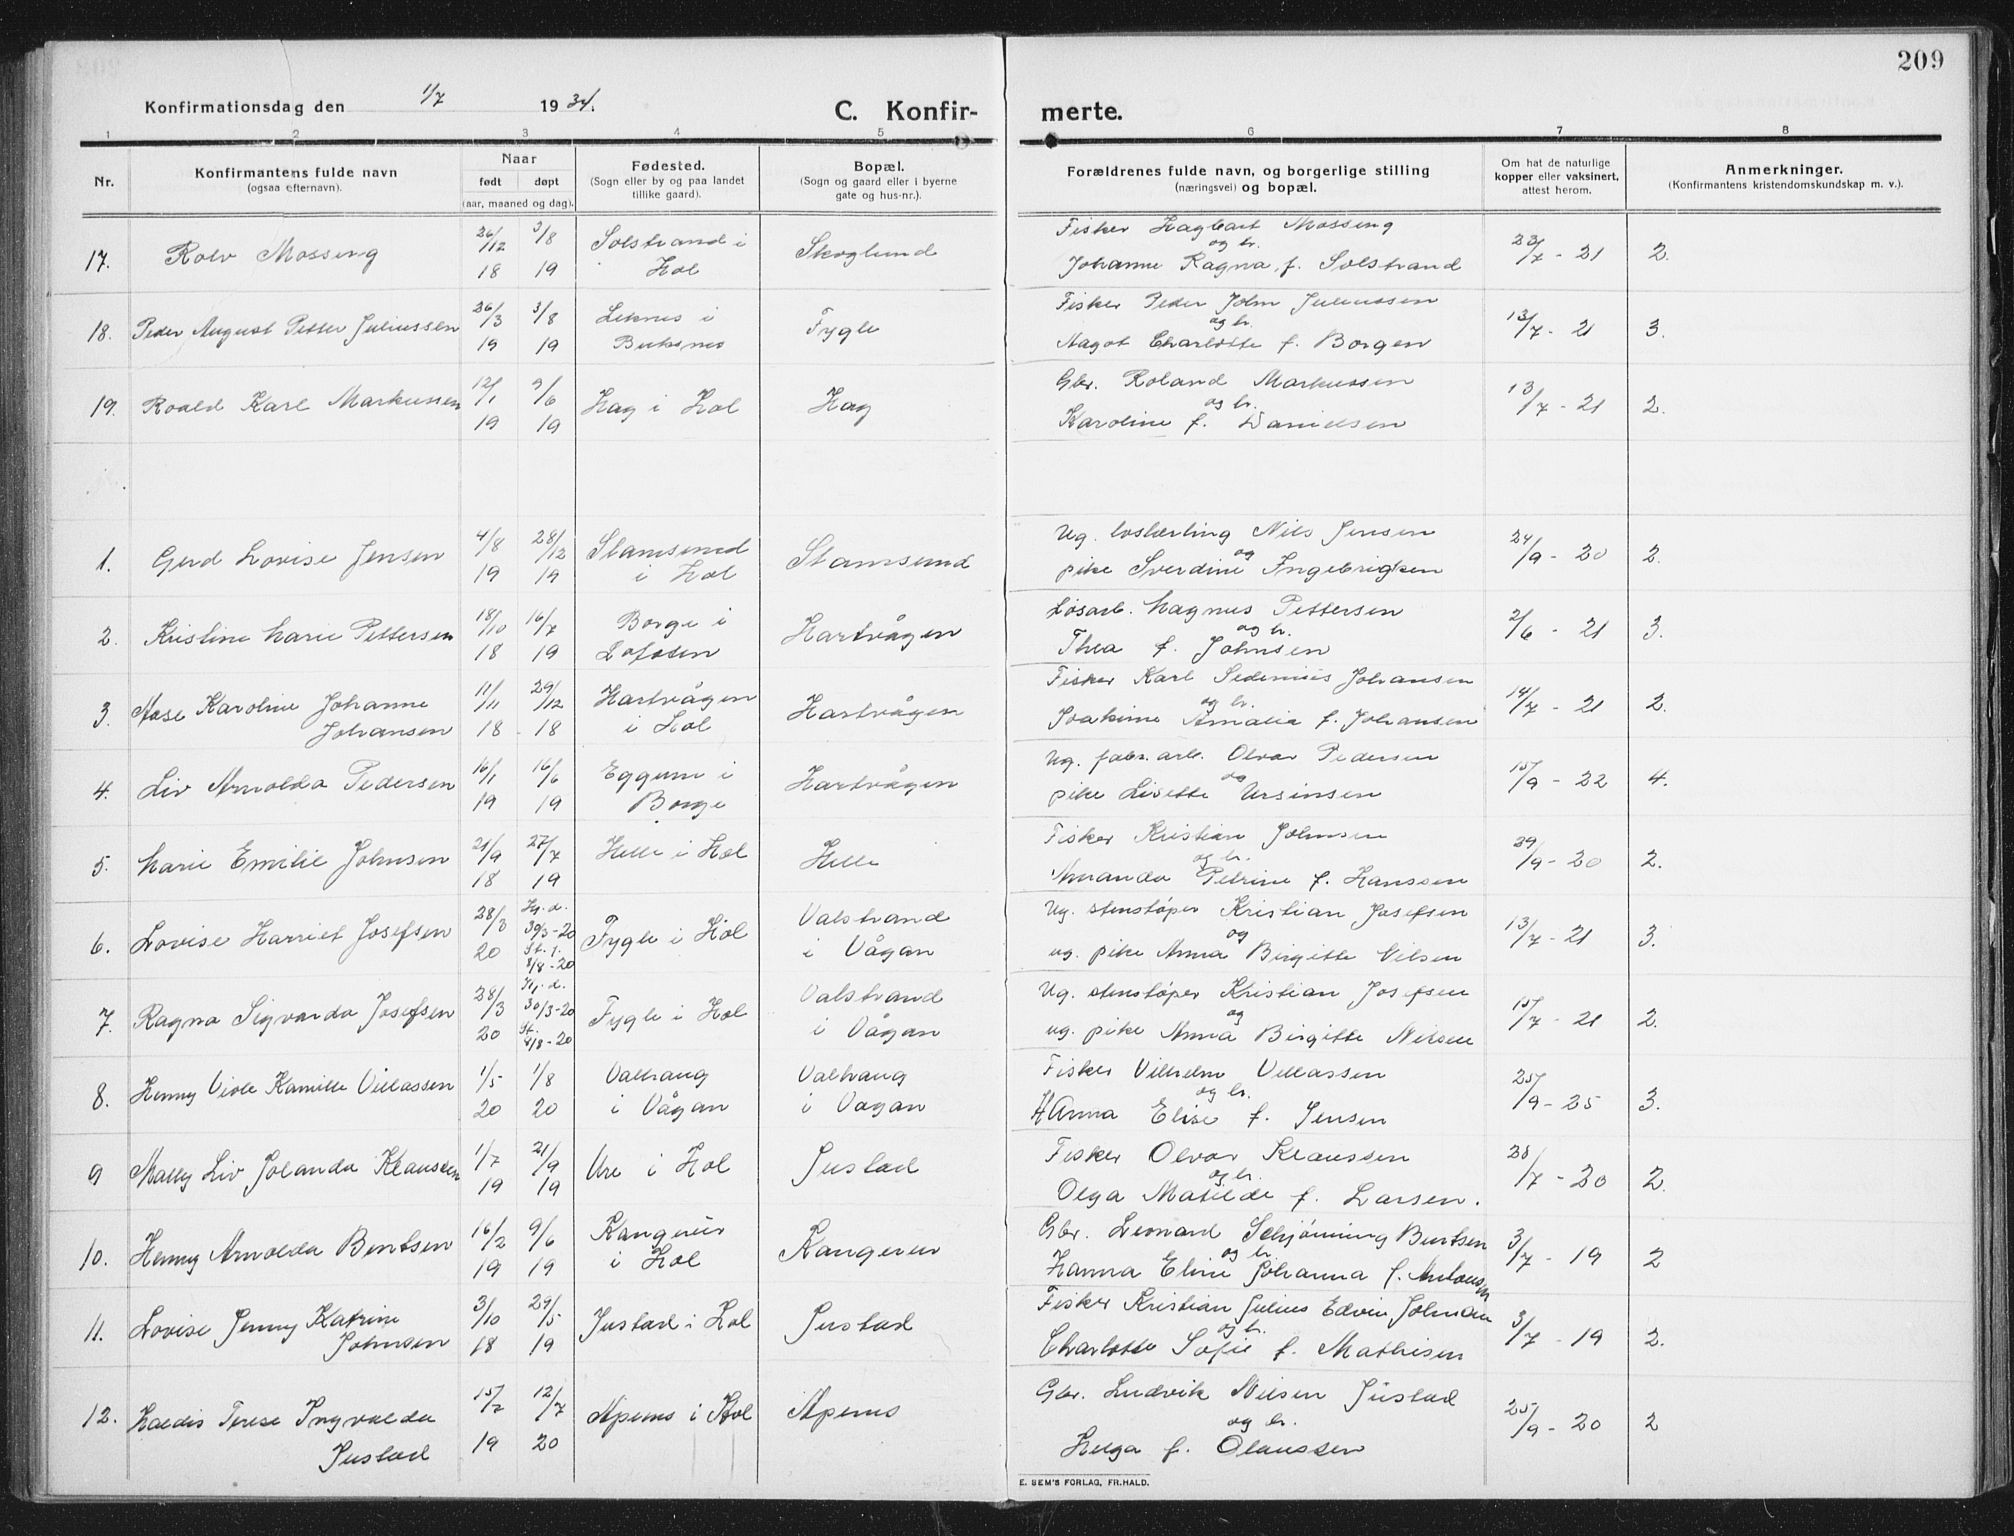 209
Konfirmationsdag den 1/7 1934.
C. Konfirmerte.
1 2 3 4 5 6 7 8
Nr.
Konfirmantens fulde navn
(ogsaa efternavn).
Naar
født døpt
(aar, maaned og dag).
Fødested.
(Sogn eller by og paa landet
tillike gaard).
Bopæl.
(Sogn og gaard eller i byerne
gate og hus-nr.).
Forældrenes fulde navn, og borgerlige stilling
(næringsvei) og bopæl.
Om hat de naturlige
kopper eller vaksinert,
attest herom.
Anmerkninger.
(Konfirmantens kristendomskundskap m. v.).
17. Rolv Mossing 26/12 18 3/8 19 Solstrand i Hol Skoglund
Fisker Hagbart Mossing
og h.
Johanne Ragna f. Solstrand
23/7 - 21 2.
18. Peder August Petter Juliussen 26/3 19 3/8 19 Leknes i Buksnes Fygle
Fisker Peder John Juliussen
og h.
Aagot Charlotte f. Borgen
13/7 - 21 3.
19. Roald Karl Markussen 12/1 19 9/6 19 Hag i Hol Hag
Gbr. Roland Markussen
og h.
Karoline f. Danielsen
13/7 - 21 2.
1. Gerd Lovise Jensen 4/8 19 28/12 19 Stamsund i Hol Stamsund
Ug. Nils Jensen
og
pike Sverdine Ingebrigtsen
24/9 - 20 2.
2. Kristine Marie Pettersen 18/10 18 16/7 19 Borge i Lofoten Hartvågen
Løsarb. Magnus Pettersen
og h.
Thea f. Johnsen
2/6 - 21 3.
3. Aase Karoline Johanne Johansen 11/11 18 29/12 18 Hartvågen i Hol Hartvågen
Fisker Karl Sedenius Johansen
og h.
Joakime Amalia f. Johansen
14/7 - 21 2.
4. Liv Arnolda Pedersen 16/1 19 16/6 19 Eggum i Borge Hartvågen
Ug. fabr. arb. Olvar Pedersen
og
pike Lisette Ursinsen
15/9 - 22 4.
5. Marie Emilie Johnsen 21/9 18 27/7 19 Helle i Hol Helle
Fisker Kristian Johnsen
og h.
Amanda Petrine f. Hanssen
29/9 - 20 2.
6. Lovise Harriet Josefsen 28/3 20 Hj. d. 30/3-20 St. i. 8/8-20 Fygle i Hol Valstrand i Vågan
Ug. stenstøper Kristian Josefsen
og
ug. pike Anna Birgitte Nilsen
13/7 - 21 3.
7. Ragna Sigvarda Josefsen 28/3 20 Hj. d. 30/3-20 St. 8/8-20 Fygle i Hol Valstrand i Vågan
Ug. stenstøper Kristian Josefsen
og
ug. pike Anna Birgitte Nilsen
15/7 - 21 2.
8. Henny Viole Kamille Villassen 1/5 20 1/8 20 Valhaug i Vågan Valhaug i Vågan
Fisker Vilhelm Villassen
og h.
Hanna Elise f. Jensen
25/9 - 25 3.
9 Mally Liv Jolanda Klaussen 1/7 19 21/9 19 Ure i Hol Justad
Fisker Olvar Klaussen
og h.
Olga Matilde f. Larsen.
28/7 - 20 2.
10. Henny Arnolda Bentsen 16/2 19 9/6 19 Rangeur i Hol Rangeur
Gbr. Leonard Schjønning Bentsen
og h.
Hanna Eline Johanna f. Antonsen
3/7 - 19 2
11. Lovise Jenny Katrine Johnsen 3/10 18 29/5 19 Justad i Hol Justad
Fisker Kristian Julius Edvin Johnsen
og h.
Charlotte Sofie f. Mathisen
3/7 - 19 2.
12. Haldis Terese Ingvalda Justad 15/2 19 12/7 20 Apenes i Hol Apenes
Gbr. Ludvik Nilsen Justad
og h.
Helga f. Olaussen
25/9 - 20 2
E. SEM'S FORLAG, FR.HALD.